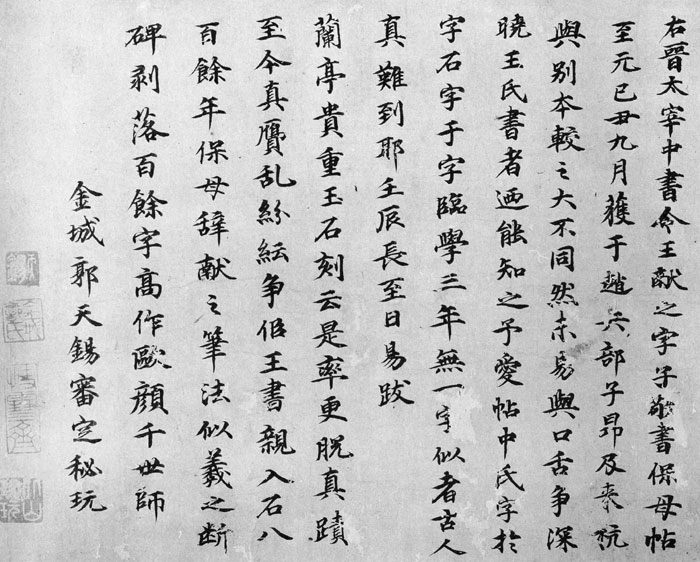 右晉太宰中書令王献之字子敬書保母帖
至元己丑九月獲于趙兵部子昂及来杭
與别本較之大不同然未易與口舌争深
曉王氏書者迺能知之予愛帖中氏字於
字石字于字臨學三年無一字似者古人
真難到耶壬辰長至日易跋
蘭亭貴重玉石刻云是率更脱真蹟
至今真贋乱紛紜争侣王書親入石八
百餘年保母辞献之筆法似羲之断
碑剥落百餘字髙作歐顔千世師
金城郭天錫審定秘玩